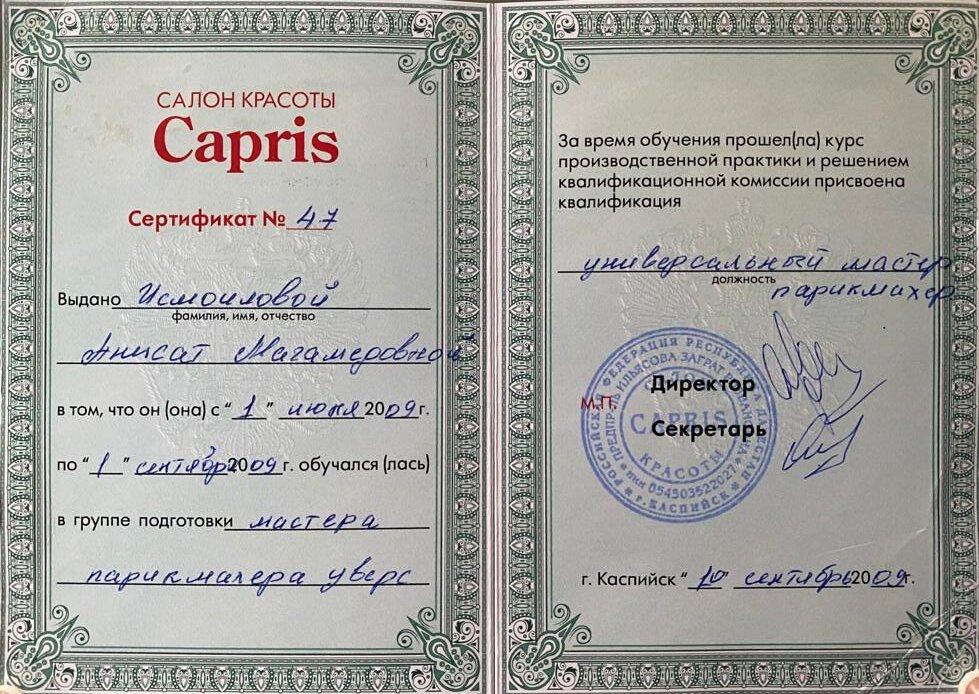 САЛОН КРАСОТЫ
Capris
Сертификат № 47
Выдано Исмоиловой
фамилия, имя, отчество
Анисат Магамедовной
в том, что он (она) с "1" июня 2009г.
по "1" сентябрь 2009 г. обучался (лась)
в группе подготовки мастера
парикмахера уверс
За время обучения прошел(ла) курс
производственной практики и решением
квалификационной комиссии присвоена
квалификация
универсальный мастер
должность
парикмахер
Директор
М.П.
Секретарь
РОССИЙСКАЯ ФЕДЕРАЦИЯ РЕСПУБЛИКА ДАГЕСТАН
г. КАСПИЙСК
ИЛЬЯСОВА ЗАГРАТ
ИНН 054503522027
САЛОН
CAPRIS
КРАСОТЫ
г. Каспийск "10" сентябрь 2009г.